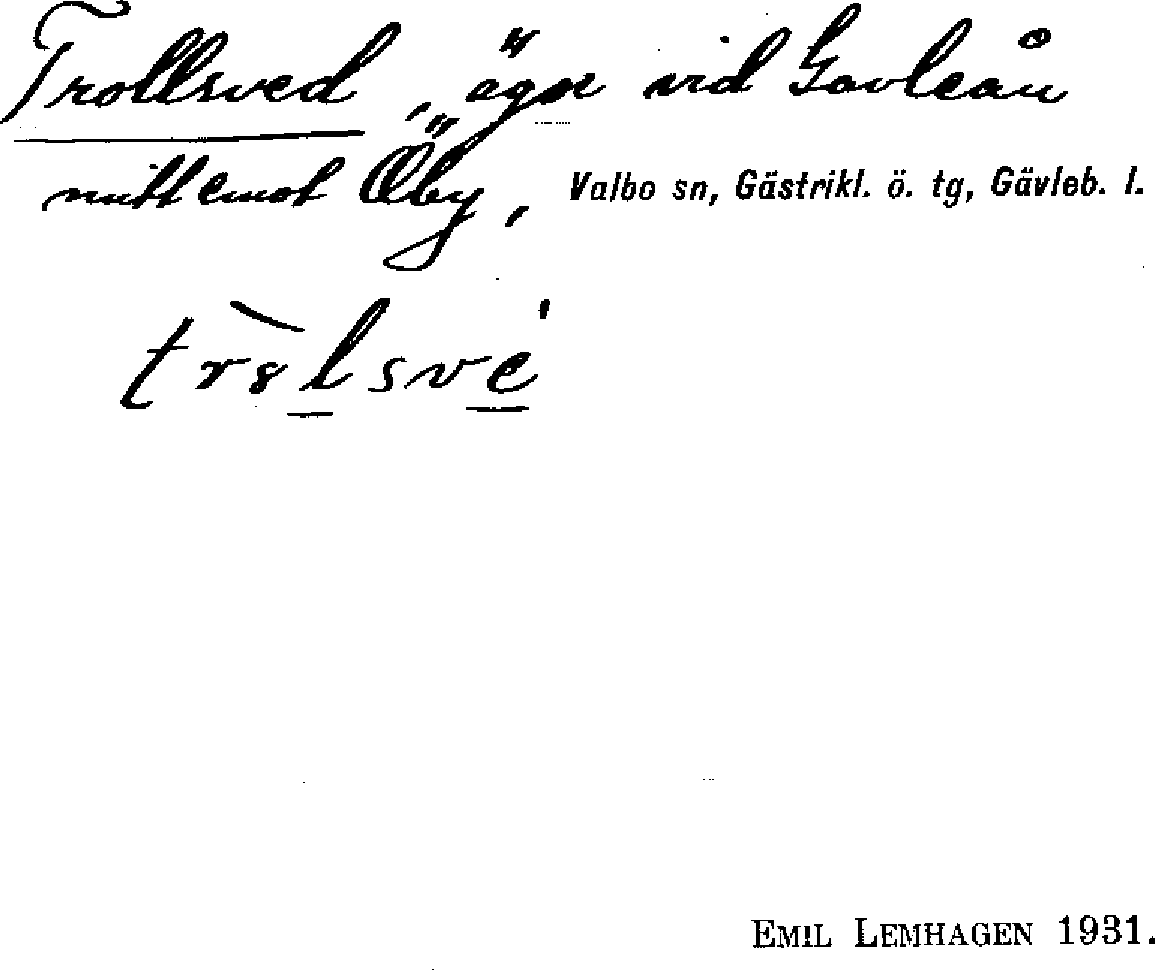 Trollsved, ägor vid Gavleån
mitt emot Öby, Valbo sn, Gästrikl. ö. tg, Gävleb. l.
EMIL LEMHAGEN 1931.